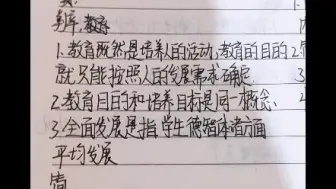 辨:教育
1.教育既然是培养人的活动,教育的目的
就只能按照人的发展需求确定
2.教育目的和培养目标是同一概念.
3.全面发展是指学生德智体诸方面
平均发展
简